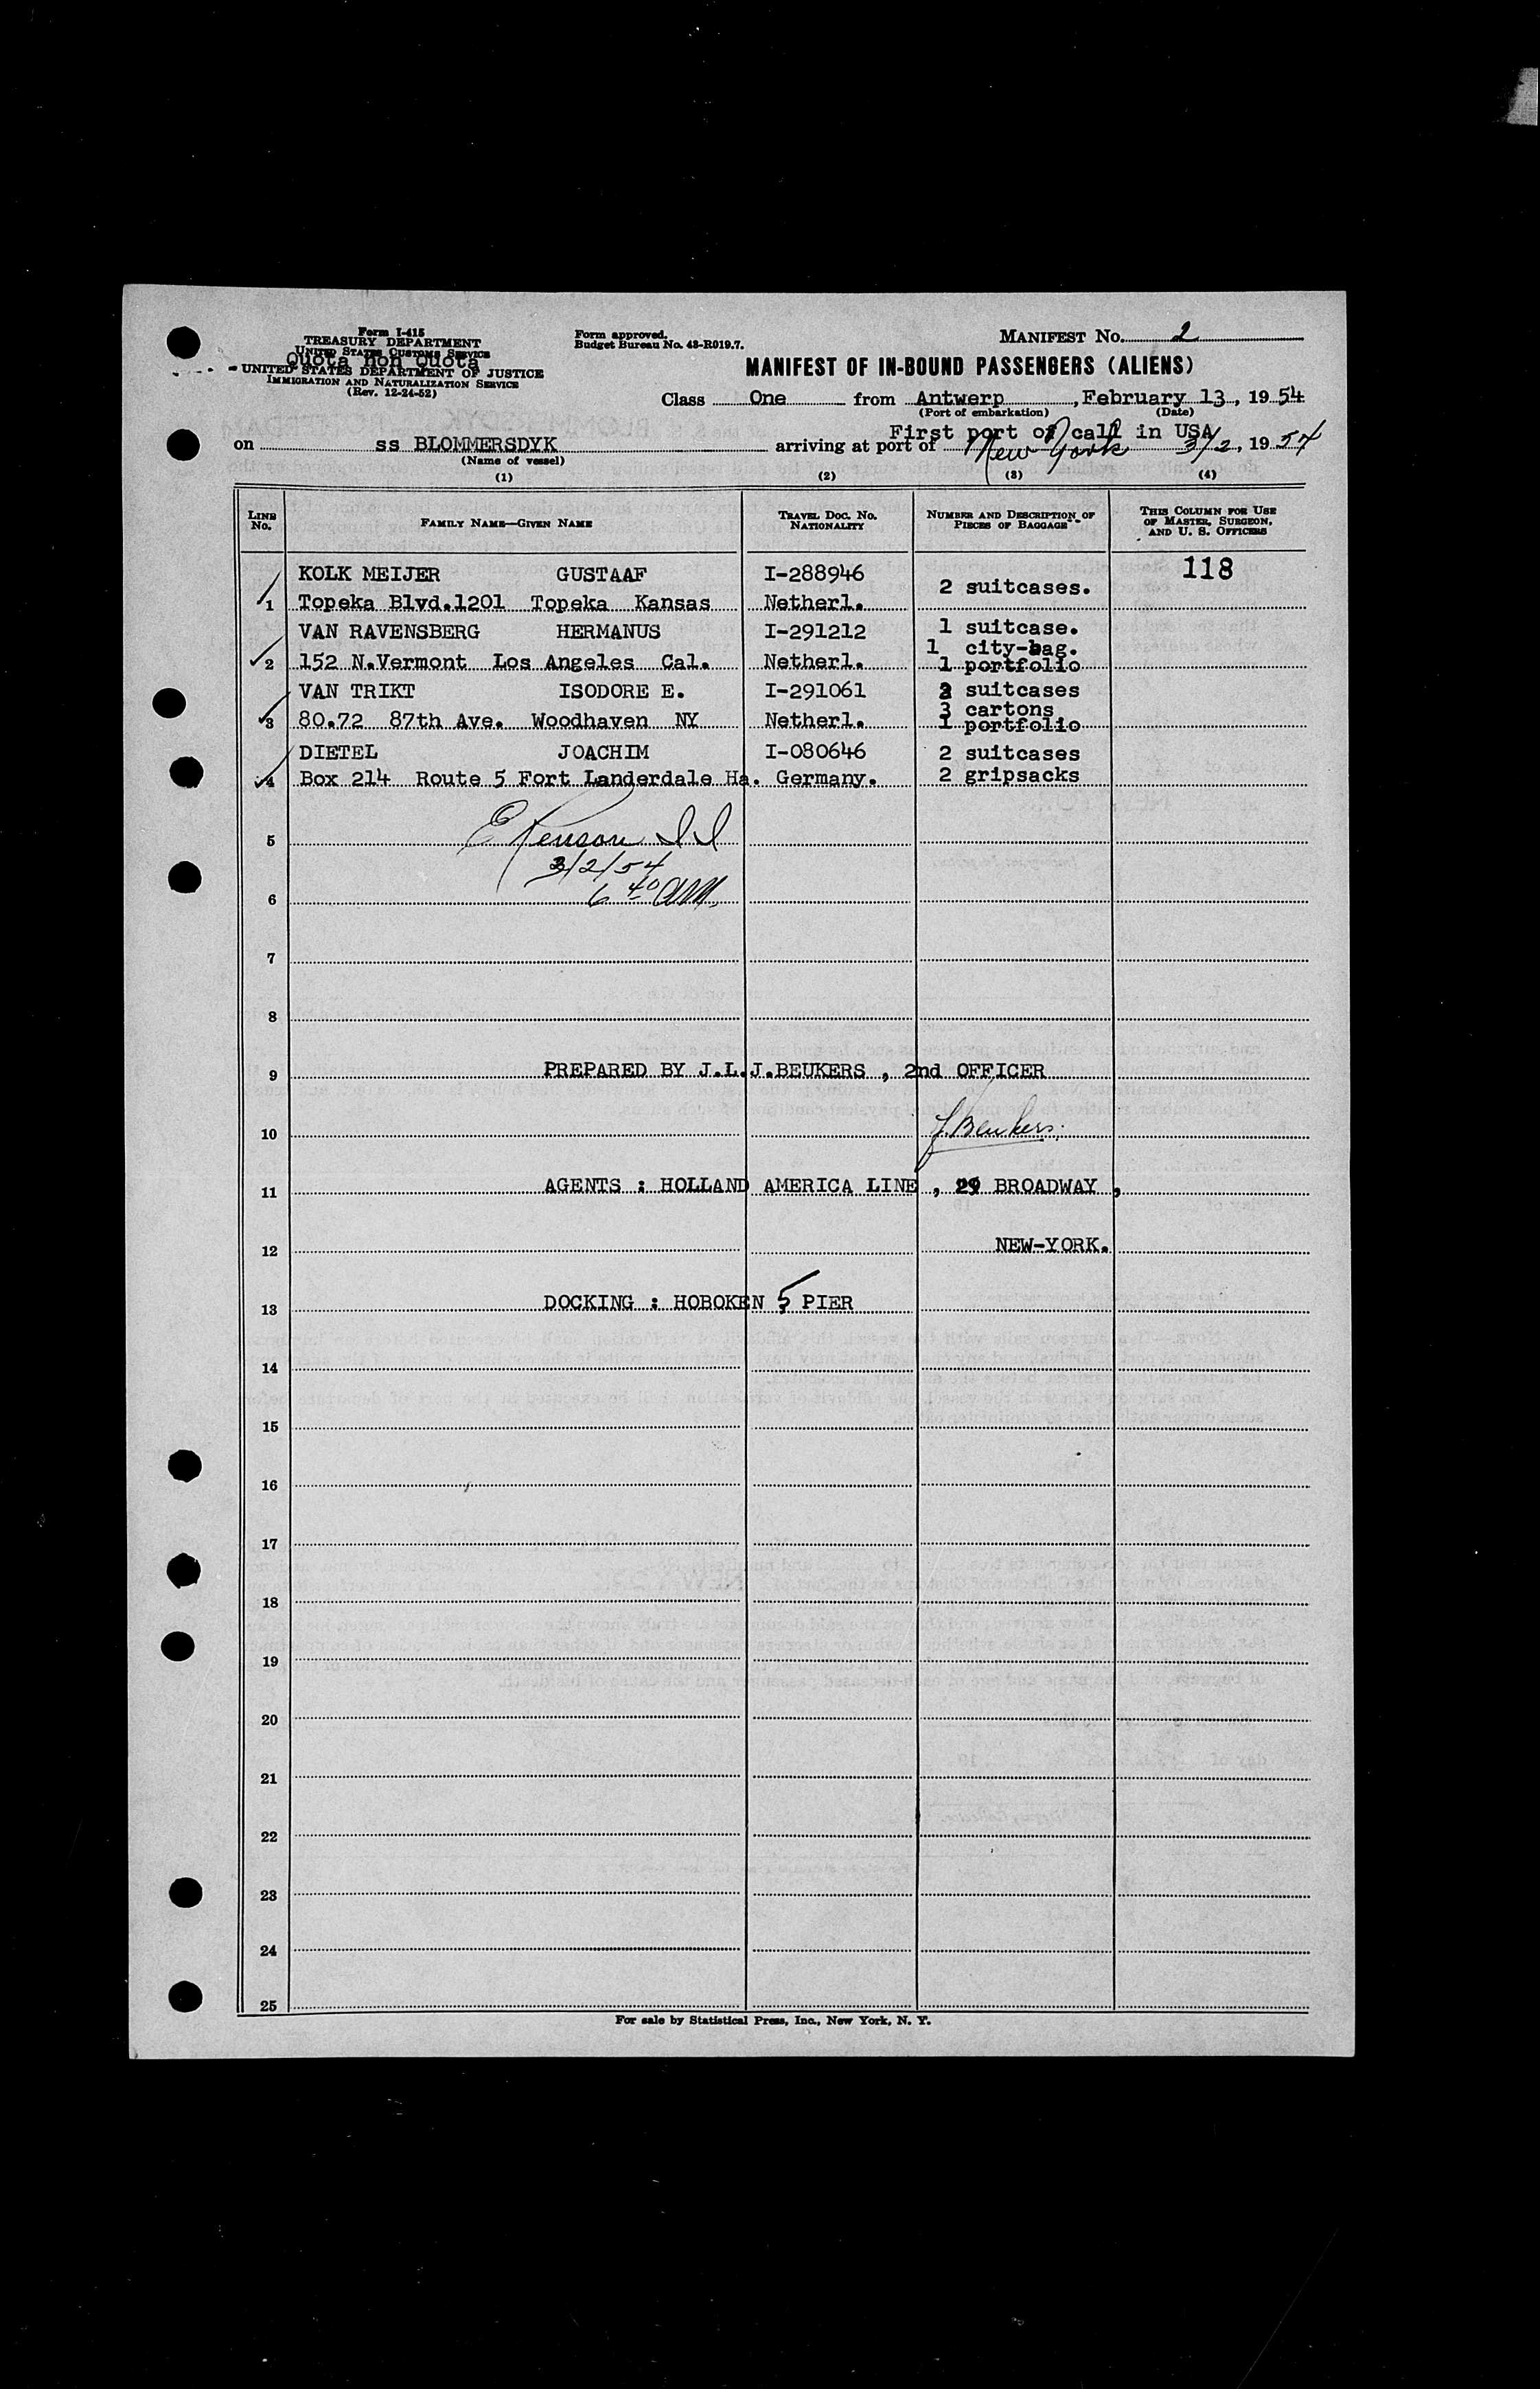 Form I-415
TREASURY DEPARTMENT
UNITED STATES CUSTOMS SERVICE
Quota non Quota
UNITED STATES DEPARTMENT OF JUSTICE
IMMIGRATION AND NATURALIZATION SERVICE
(Rev. 12-24-52)
Form approved.
Budget Bureau No. 43-R019.7.
MANIFEST No. 2
MANIFEST OF IN-BOUND PASSENGERS (ALIENS)
Class One from Antwerp, February 13, 1954
(Port of embarkation) (Date)
First port of call in USA
on ss BLOMMERSDYK arriving at port of New York 3/2, 1954
(Name of vessel)
(1) (2) (3) (4)
LINE No. FAMILY NAME—GIVEN NAME TRAVEL DOC. No. NATIONALITY NUMBER AND DESCRIPTION OF PIECES OF BAGGAGE THIS COLUMN FOR USE OF MASTER, SURGEON, AND U. S. OFFICERS
KOLK MEIJER GUSTAAF I-288946 2 suitcases. 118
1 Topeka Blvd.1201 Topeka Kansas Netherl.
VAN RAVENSBERG HERMANUS I-291212 1 suitcase.
1 city-bag.
2 152 N.Vermont Los Angeles Cal. Netherl. 1 portfolio
VAN TRIKT ISODORE E. I-291061 2 suitcases
3 cartons
3 80.72 87th Ave. Woodhaven NY Netherl. 1 portfolio
DIETEL JOACHIM I-080646 2 suitcases
4 Box 214 Route 5 Fort Landerdale Ha. Germany. 2 gripsacks
5
3/2/54
6 6 40 AM
7
8
9 PREPARED BY J.L.J.BEUKERS , 2nd OFFICER
10 J. Beukers.
11 AGENTS : HOLLAND AMERICA LINE , 29 BROADWAY ,
12 NEW-YORK.
13 DOCKING : HOBOKEN 5 PIER
14
15
16
17
18
19
20
21
22
23
24
25
For sale by Statistical Press, Inc., New York, N. Y.